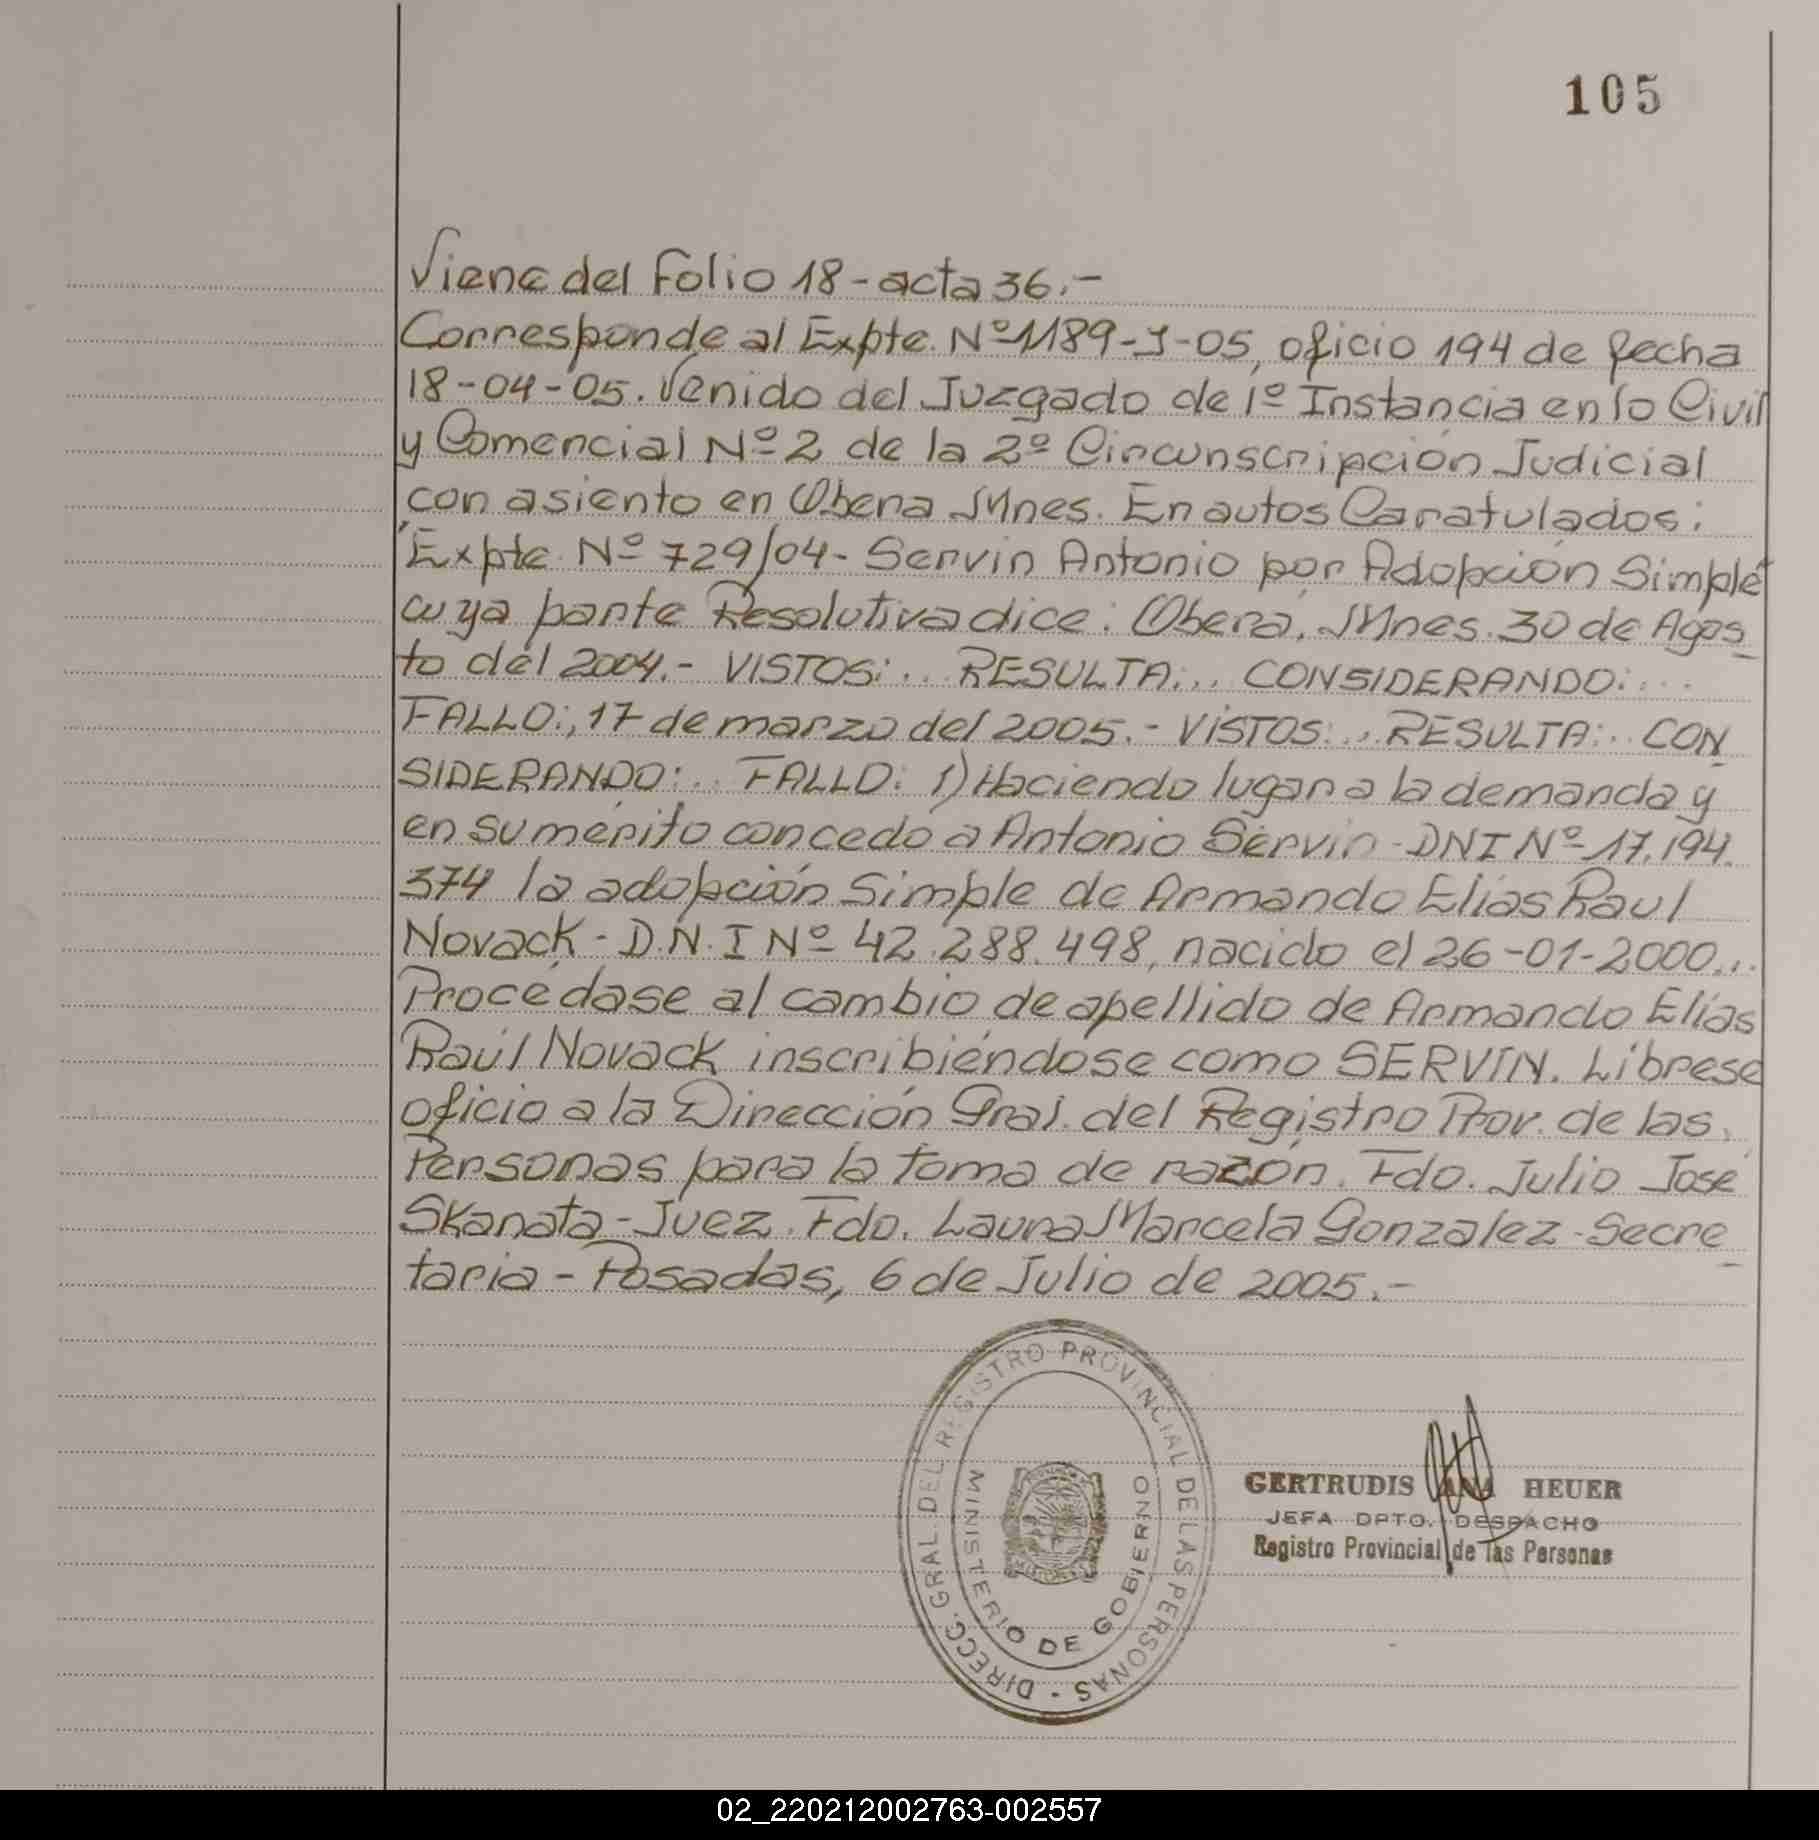 105
Viene del Folio 18 - acta 36.-
Corresponde al Expte. Nº 1189-J-05, oficio 194 de fecha
18-04-05. Venido del Juzgado de 1º Instancia en lo Civil
y Comercial Nº 2 de la 2º Circunscripción Judicial
con asiento en Obera Mnes. En autos Caratulados:
"Expte. Nº 729/04- Servin Antonio por Adopción Simple"
cuya parte Resolutiva dice: Oberá, Mnes. 30 de Agos_
to del 2004.- VISTOS:... RESULTA:... CONSIDERANDO:...
FALLO:, 17 de marzo del 2005.- VISTOS:... RESULTA:.. CON_
SIDERANDO:.. FALLO: 1) Haciendo lugar a la demanda y
en su mérito concedo a Antonio Servin - DNI Nº 17.194.
374 la adopción Simple de Armando Elías Raul
Novack - D.N.I Nº 42.288.498, nacido el 26-01-2000...
Procédase al cambio de apellido de Armando Elías
Raúl Novack inscribiéndose como SERVIN. Líbrese
oficio a la Dirección Gral. del Registro Prov. de las
Personas para la toma de razón. Fdo. Julio José
Skanata - Juez. Fdo. Laura Marcela Gonzalez - Secre_
taria - Posadas, 6 de Julio de 2005.-
DIRECC. GRAL. DEL REGISTRO PROVINCIAL DE LAS PERSONAS -
MINISTERIO DE GOBIERNO
GERTRUDIS ANA HEUER
JEFA DPTO. DESPACHO
Registro Provincial de las Personas
02_220212002763-002557